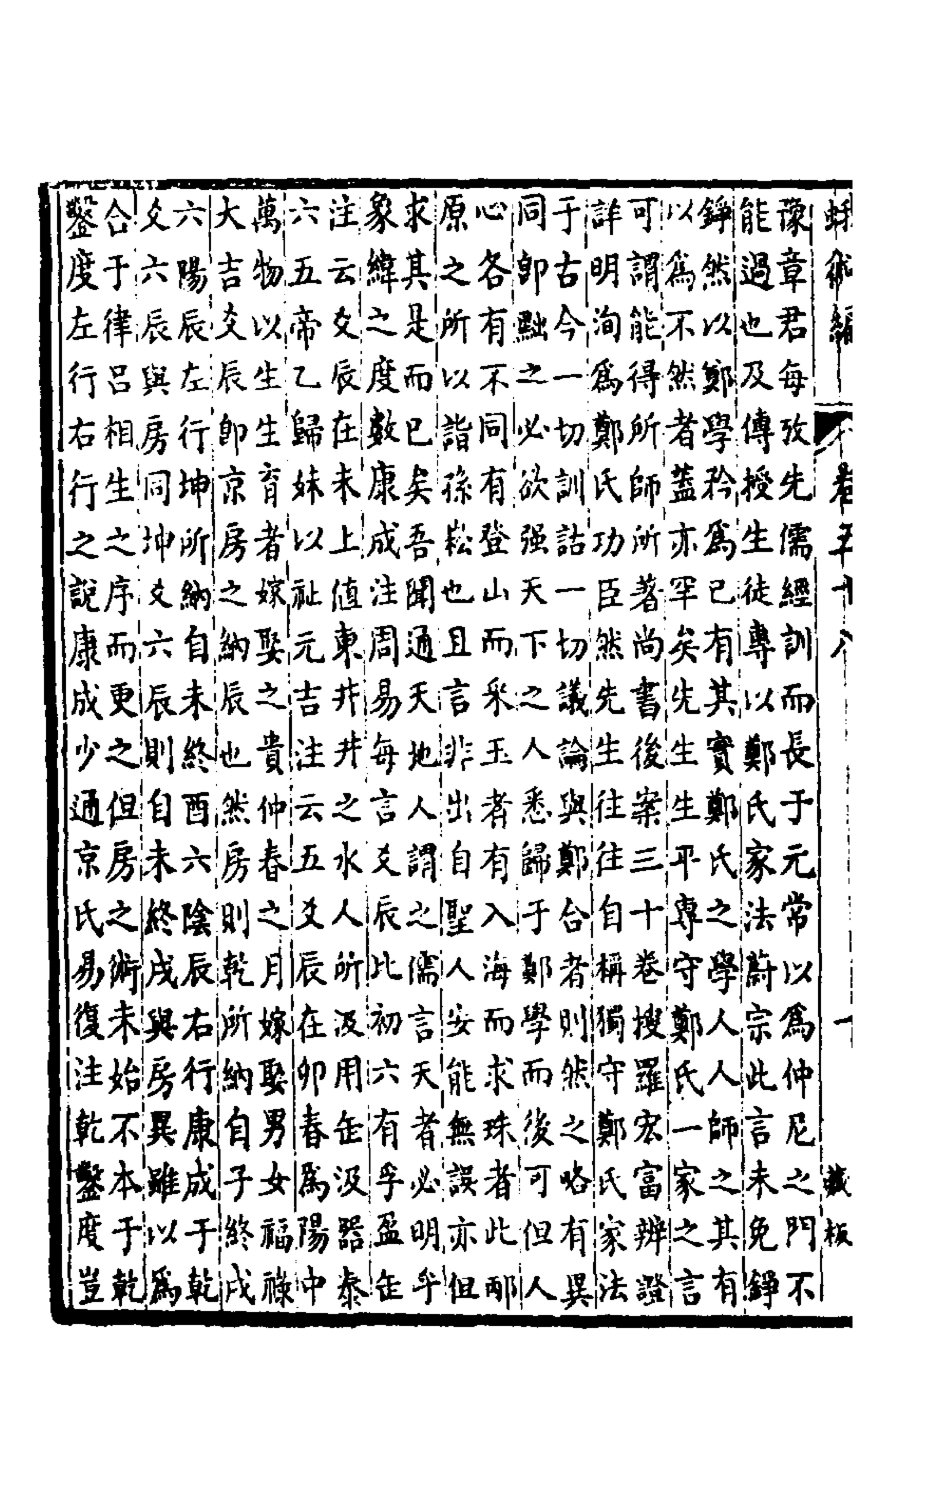 蛾術編　卷五十八　一　藏板
豫章君每攷先儒經訓而長于元常以為仲尼之門不
能過也及傳授生徒專以鄭氏家法蔚宗此言未免錚
錚然以鄭學矜為已有其實鄭氏之學人人師之其有
以為不然者蓋亦罕矣先生生平專守鄭氏一家之言
可謂能得所師所著尚書後案三十卷搜羅宏富辨證
詳明洵為鄭氏功臣然先生往往自稱獨守鄭氏家法
于古今一切訓詁一切議論與鄭合者則然之略有異
同卽黜之必欲强天下之人悉歸于鄭學而後可但人
心各有不同有登山而采玉者有入海而求珠者此邴
原之所以詣孫崧也且言非出自聖人安能無誤亦但
求其是而已矣吾聞通天地人謂之儒言天者必明乎
象緯之度數康成注周易每言爻辰此初六有孚盈缶
注云爻辰在未上値東井井之水人所汲用缶汲器泰
六五帝乙歸妹以祉元吉注云五爻辰在卯春為陽中
萬物以生生育者嫁娶之貴仲春之月嫁娶男女福祿
大吉爻辰卽京房之納辰也然房則乾所納自子終戌
六陽辰左行坤所納自未終酉六陰辰右行康成于乾
爻六辰與房同坤爻六辰則自未終戌與房異雖以為
合于律呂相生之序而更之但房之術未始不本于乾
鑿度左行右行之說康成少通京氏易復注乾鑿度豈